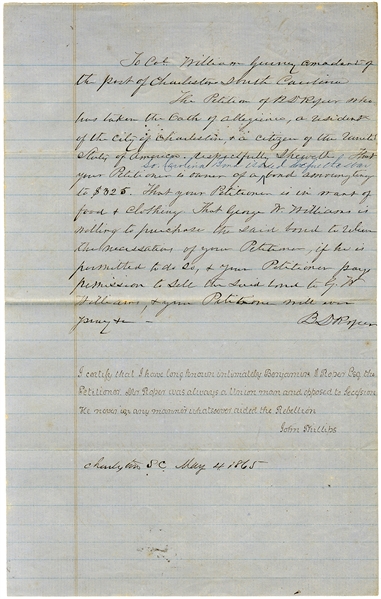 To Col William Gurney Comadant of
the post of Charleston South Carolina
The Petition of B D Roper who
has taken the Oath of Allegiance, a resident
of the City of Charleston & a Citizen of the United
States of America, respectfully Sheweth, That
So. Carolina
your Petitioner is owner of a bond amounting
to $325. That your Petitioner is in want of
food & Clothing That George W. Williams is
willing to purchase the said bond to
the necessities of your Petitioner, if he is
permitted to do so, & your Petitioner prays
permission to sell the said bond to G. W
Williams, & your Petitioner will ever
pray &c —
B D Roper
I certify that I have long known intimately Benjamin D Roper Esq the
Petitioner. Mr Roper was always a Union man and opposed to Secession
He never in any manner whatsoever aided the Rebellion
John Phillips
Charleston S.C. May 4 1865